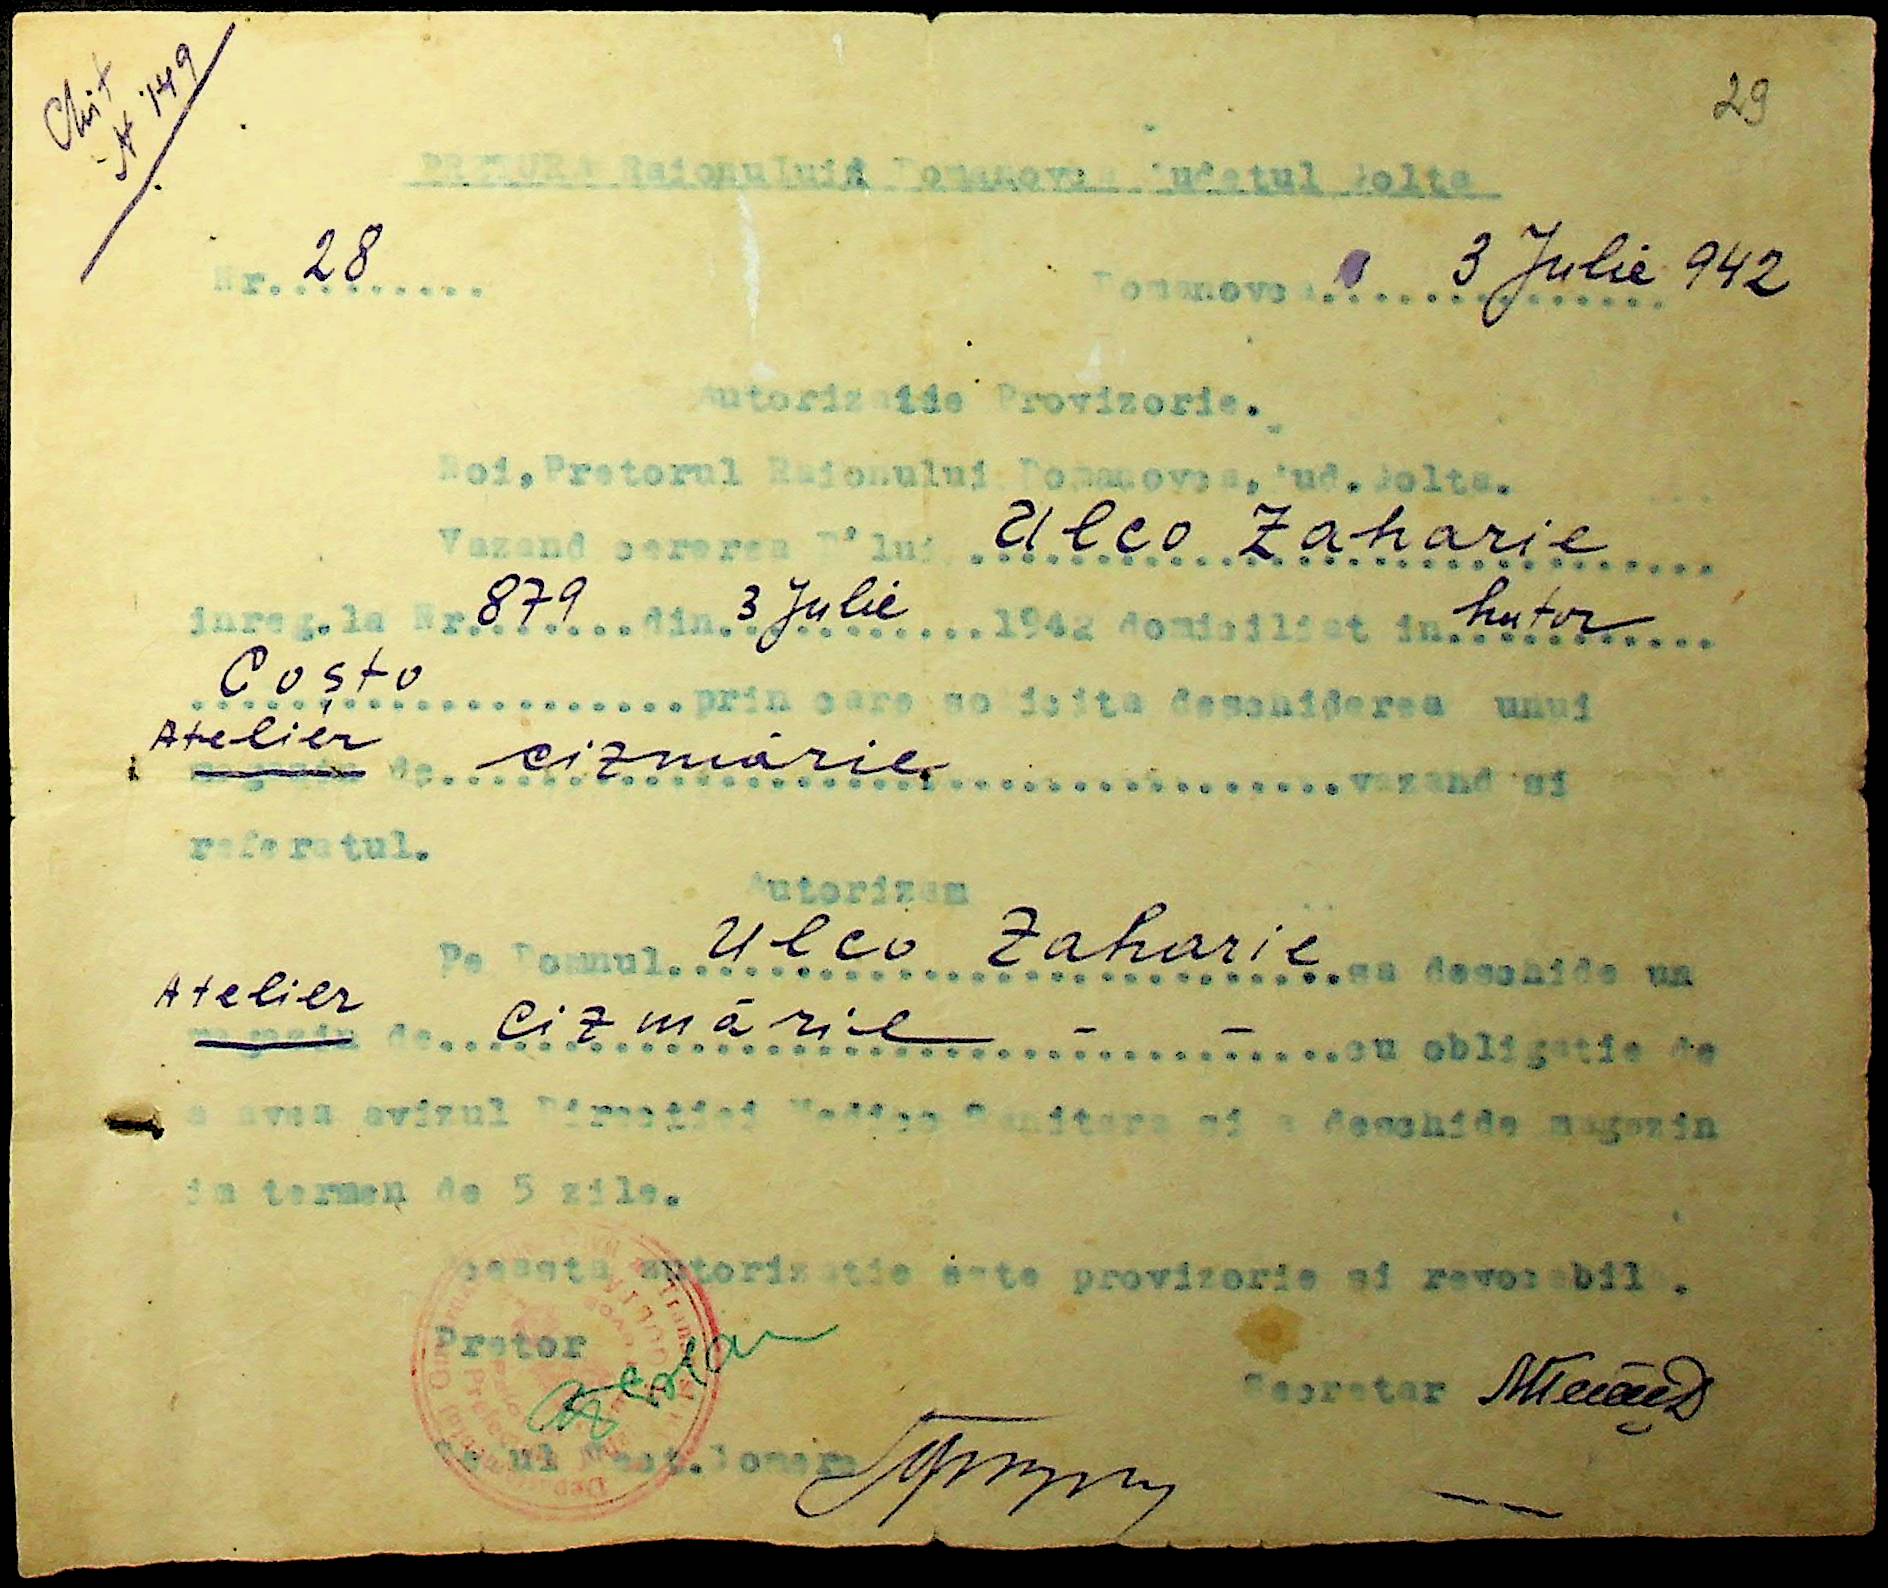 Chit
N 149
29
PRETURA Raionului Domanovca Judetul Golta
Nr. 28
Domanovca 3 Julie 942
Autorizatie Provizorie.
Noi, Pretorul Raionului Domanovca, Jud. Golta.
Vazand cererea D'lui Ulco Zaharie
inreg. la Nr. 879 din 3 Julie 1942 domiciliat in hutor
Coșto prin care solicita deschiderea unui
Atelier
magazin de cizmărie vazand si
referatul.
Autorizam
Pe Domnul Ulco Zaharie sa deschide un
Atelier
magazin de Cizmărie - - cu obligatie de
a avea avizul Directiei Medico Sanitara si a deschide magazin
in termen de 5 zile.
Aceasta autorizatie este provizorie si revocabil .
Pretor
Secretar